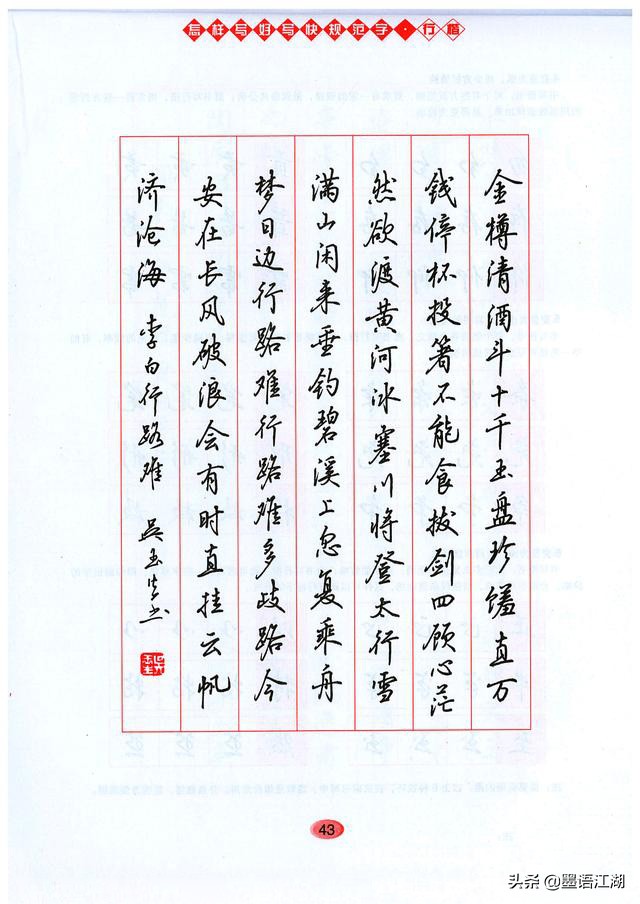 怎样写好写快规范字·行楷
金樽清酒斗十千玉盘珍馐直万
钱停杯投箸不能食拔剑四顾心茫
然欲渡黄河冰塞川将登太行雪
满山闲来垂钓碧溪上忽复乘舟
梦日边行路难行路难多歧路今
安在长风破浪会有时直挂云帆
济沧海 李白行路难 吴玉生书
43
头条 @墨语江湖